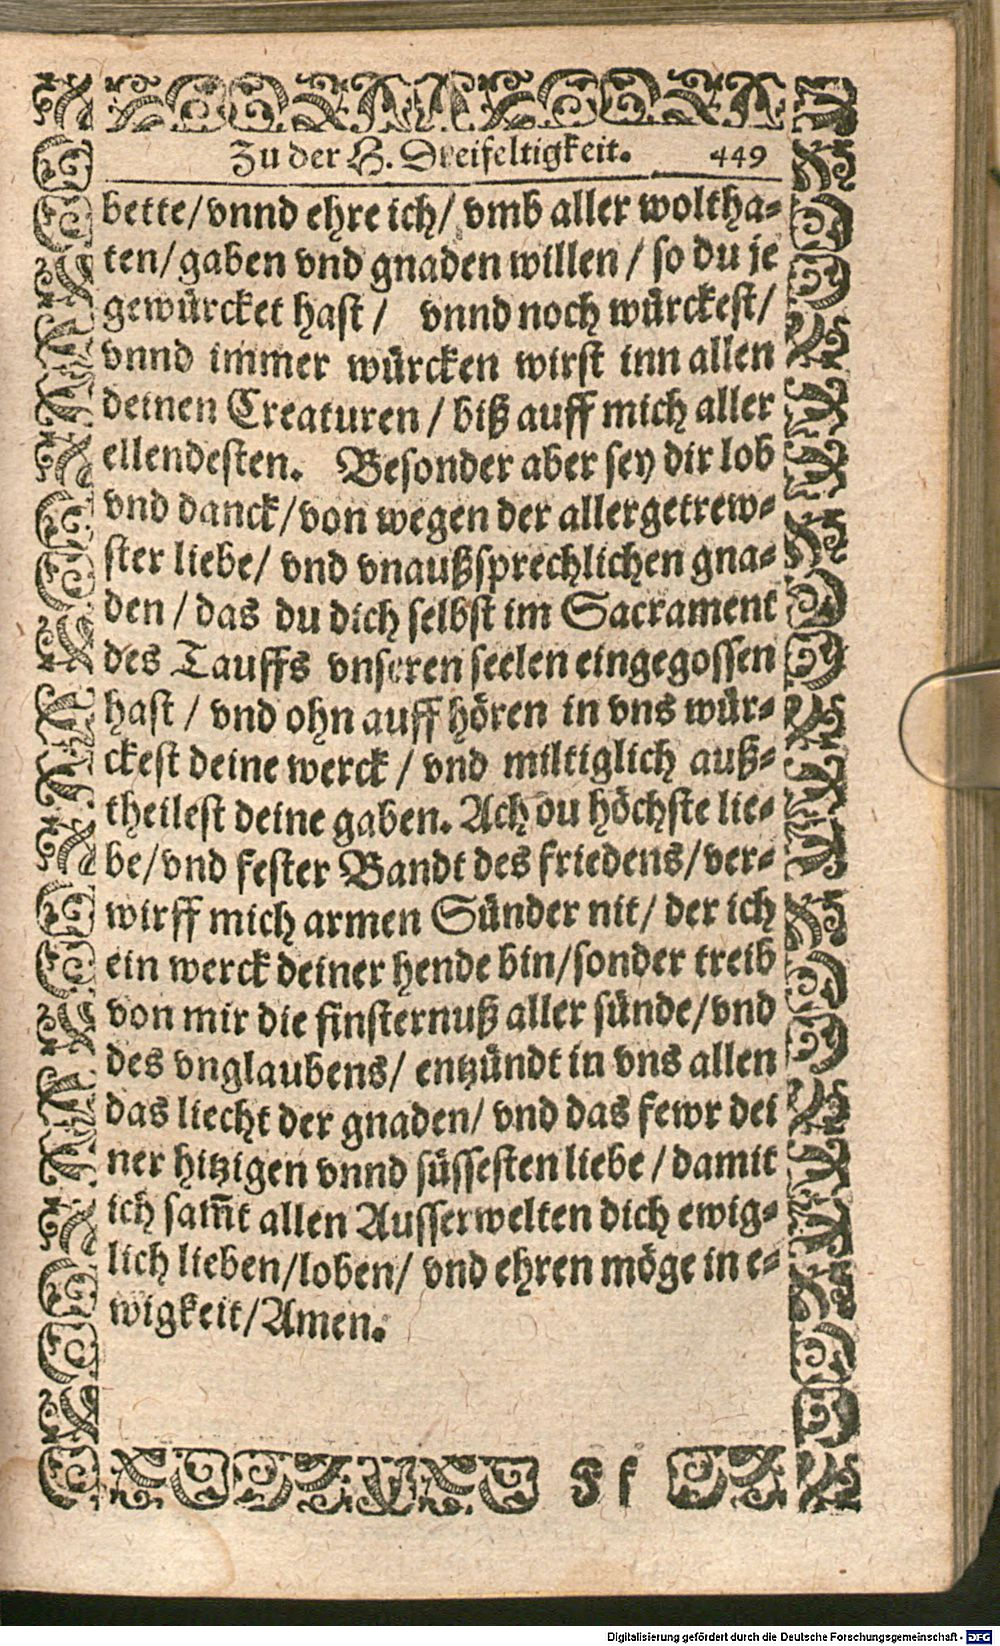 Zu der H. Dreifeltigkeit. 449
bette/vnnd ehre ich/ vmb aller woltha-
ten/gaben vnd gnaden willen / so du je
gewürcket hast / vnnd noch würckest/
vnnd immer würcken wirst inn allen
deinen Creaturen / biß auff mich aller
ellendesten. Besonder aber sey dir lob
vnd danck/von wegen der allergetrew-
ster liebe/ vnd vnaußsprechlichen gna-
den / das du dich selbst im Sacrament
des Tauffs vnseren seelen eingegossen
hast / vnd ohn auff hören in vns wür-
ckest deine werck / vnd miltiglich auß-
theilest deine gaben. Ach du höchste lie-
be/vnd fester Bandt des friedens/ver-
wirff mich armen Sünder nit/ der ich
ein werck deiner hende bin/sonder treib
von mir die finsternuß aller sünde/vnd
des vnglaubens/ entzündt in vns allen
das liecht der gnaden/ vnd das fewr dei
ner hitzigen vnnd süssesten liebe / damit
ich sam̃t allen Ausserwelten dich ewig-
lich lieben/loben/ vnd ehren möge in e-
wigkeit/Amen.
Ff
Digitalisierung gefördert durch die Deutsche Forschungsgemeinschaft - DFG